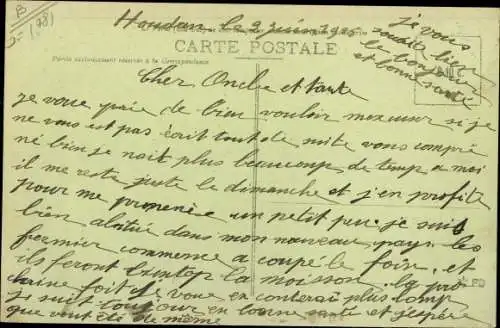 B
5=(98)
Houdan, le 2 juin 1925
CARTE POSTALE
Partie exclusivement réservée à la Correspondance
Je vous
souhaite bien
le bonjour
et bonne santé
Cher Oncle et tante
je vous prie de bien vouloir mexcuser si je
ne vous est pas écrit tout de suite vous compre
né bien je nait plus beaucoup de temp a moi
il me reste juste le dimanche et j'en profite
pour me promenée un petit peu je suis
bien abitué dans mon nouveau pays les
fermier commence a coupé le foin et
ils feront bientop la moisson. la pro
chaine foit je vous en conterai plus long
je suit toujour en bonne santé et j'espère
que vous été de même